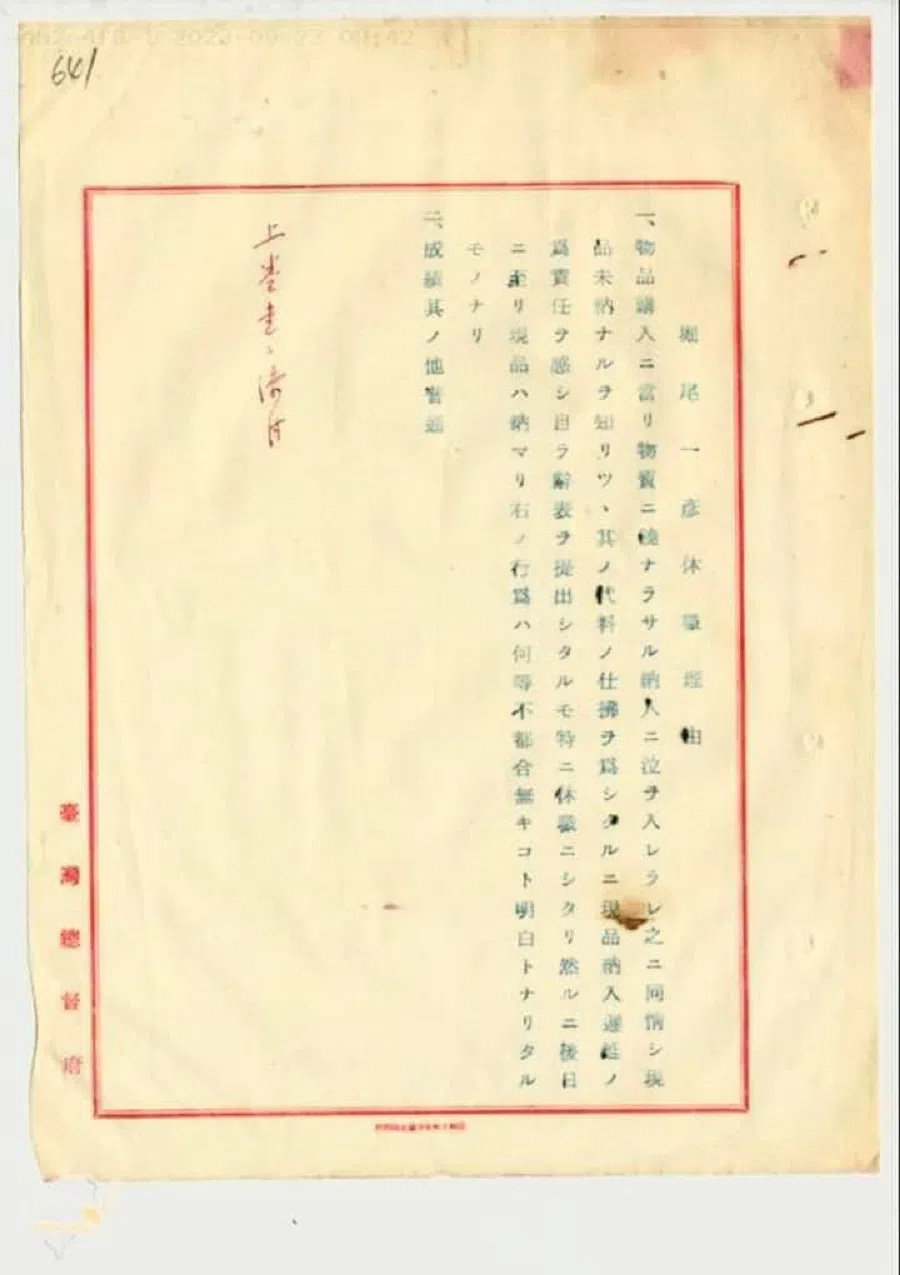 641
堀尾一彦休職理由
一、物品購入ニ當リ物質ニ餘ナラサル納人ニ泣ヲ入レラレ之ニ同情シ現
品未納ナルヲ知リツヽ其ノ代料ノ仕拂ヲ爲シタルニ現品納入遲延ノ
爲責任ヲ感シ自ラ辭表ヲ提出シタルモ特ニ休職ニシタリ然ルニ後日
ニ至リ現品ハ納マリ右ノ行爲ハ何等不都合無キコト明白トナリタル
モノナリ
二、成績其ノ他普通
臺灣總督府